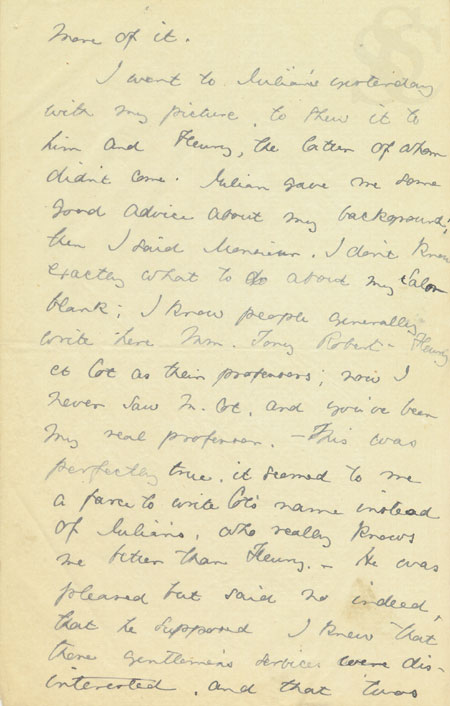 more of it.
I went to Julian's yesterday
with my picture, to shew it to
him and Fleury, the latter of whom
didn't come. Julian gave me some
good advice about my background;
then I said Monsieur, I don't know
exactly what to do about my Salon
blank; I know people generally
write here Mm. Tony Robert-Fleury
et Cot as their professors; now I
never saw M. Cot, and you've been
my real professor. – This was
perfectly true, it seemed to me
a farce to write Cot's name instead
of Julian's, who really knows
me better than Fleury. – He was
pleased but said no indeed,
that he supposed I knew that
these gentlemen's services were dis-
interested, and that twas